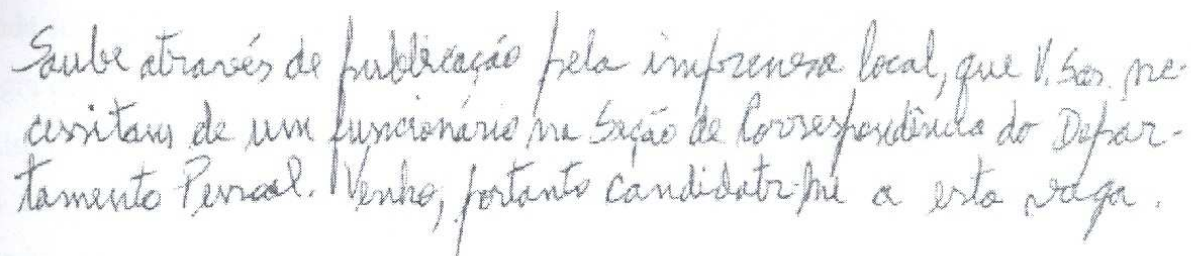 Soube através de publicação pela imprensa local, que V. Sas. ne-
cessitam de um funcionário na Seção de Correspondência do Depar-
tamento Pessoal. Venho, portanto candidatar-me a esta vaga.